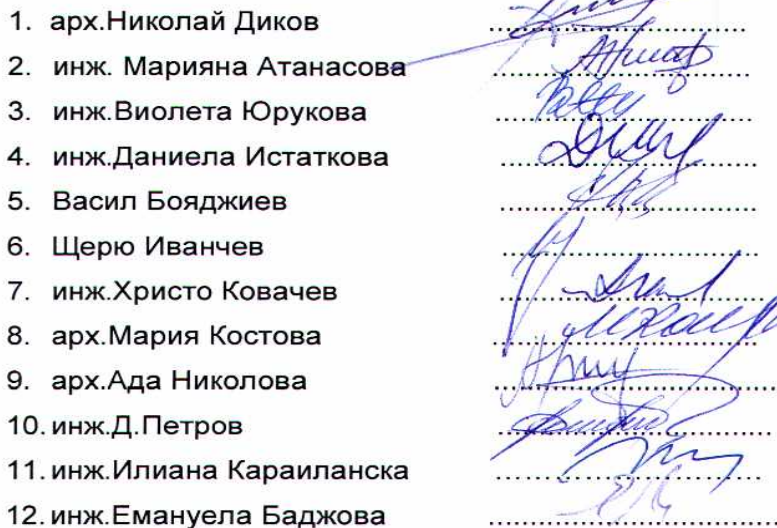 1. арх.Николай Диков
2. инж. Марияна Атанасова
3. инж.Виолета Юрукова
4. инж.Даниела Истаткова
5. Васил Бояджиев
6. Щерю Иванчев
7. инж.Христо Ковачев
8. арх.Мария Костова
9. арх.Ада Николова
10. инж.Д.Петров
11. инж.Илиана Караиланска
12. инж.Емануела Баджова